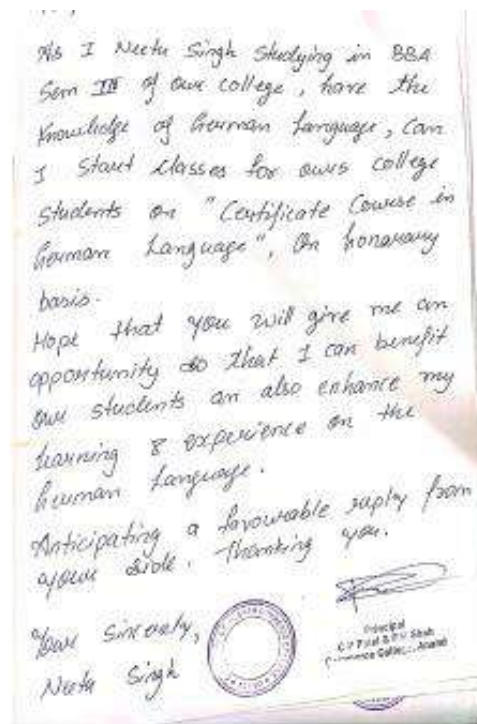 As I Neetu Singh Studying in BBA
Sem III of our college, have the
Knowledge of German Language, Can
I Start classes for ours college
Students on "Certificate Course in
German Language", On honarary
basis.
Hope that you will give me an
opportunity so that I can benefit
our students an also enhance my
learning & experience on the
German Language.
Anticipating a favourable reply from
your side. Thanking you.
Your Sincerely,
Neetu Singh
Principal
C P Patel & F H Shah
Commerce College, Anand